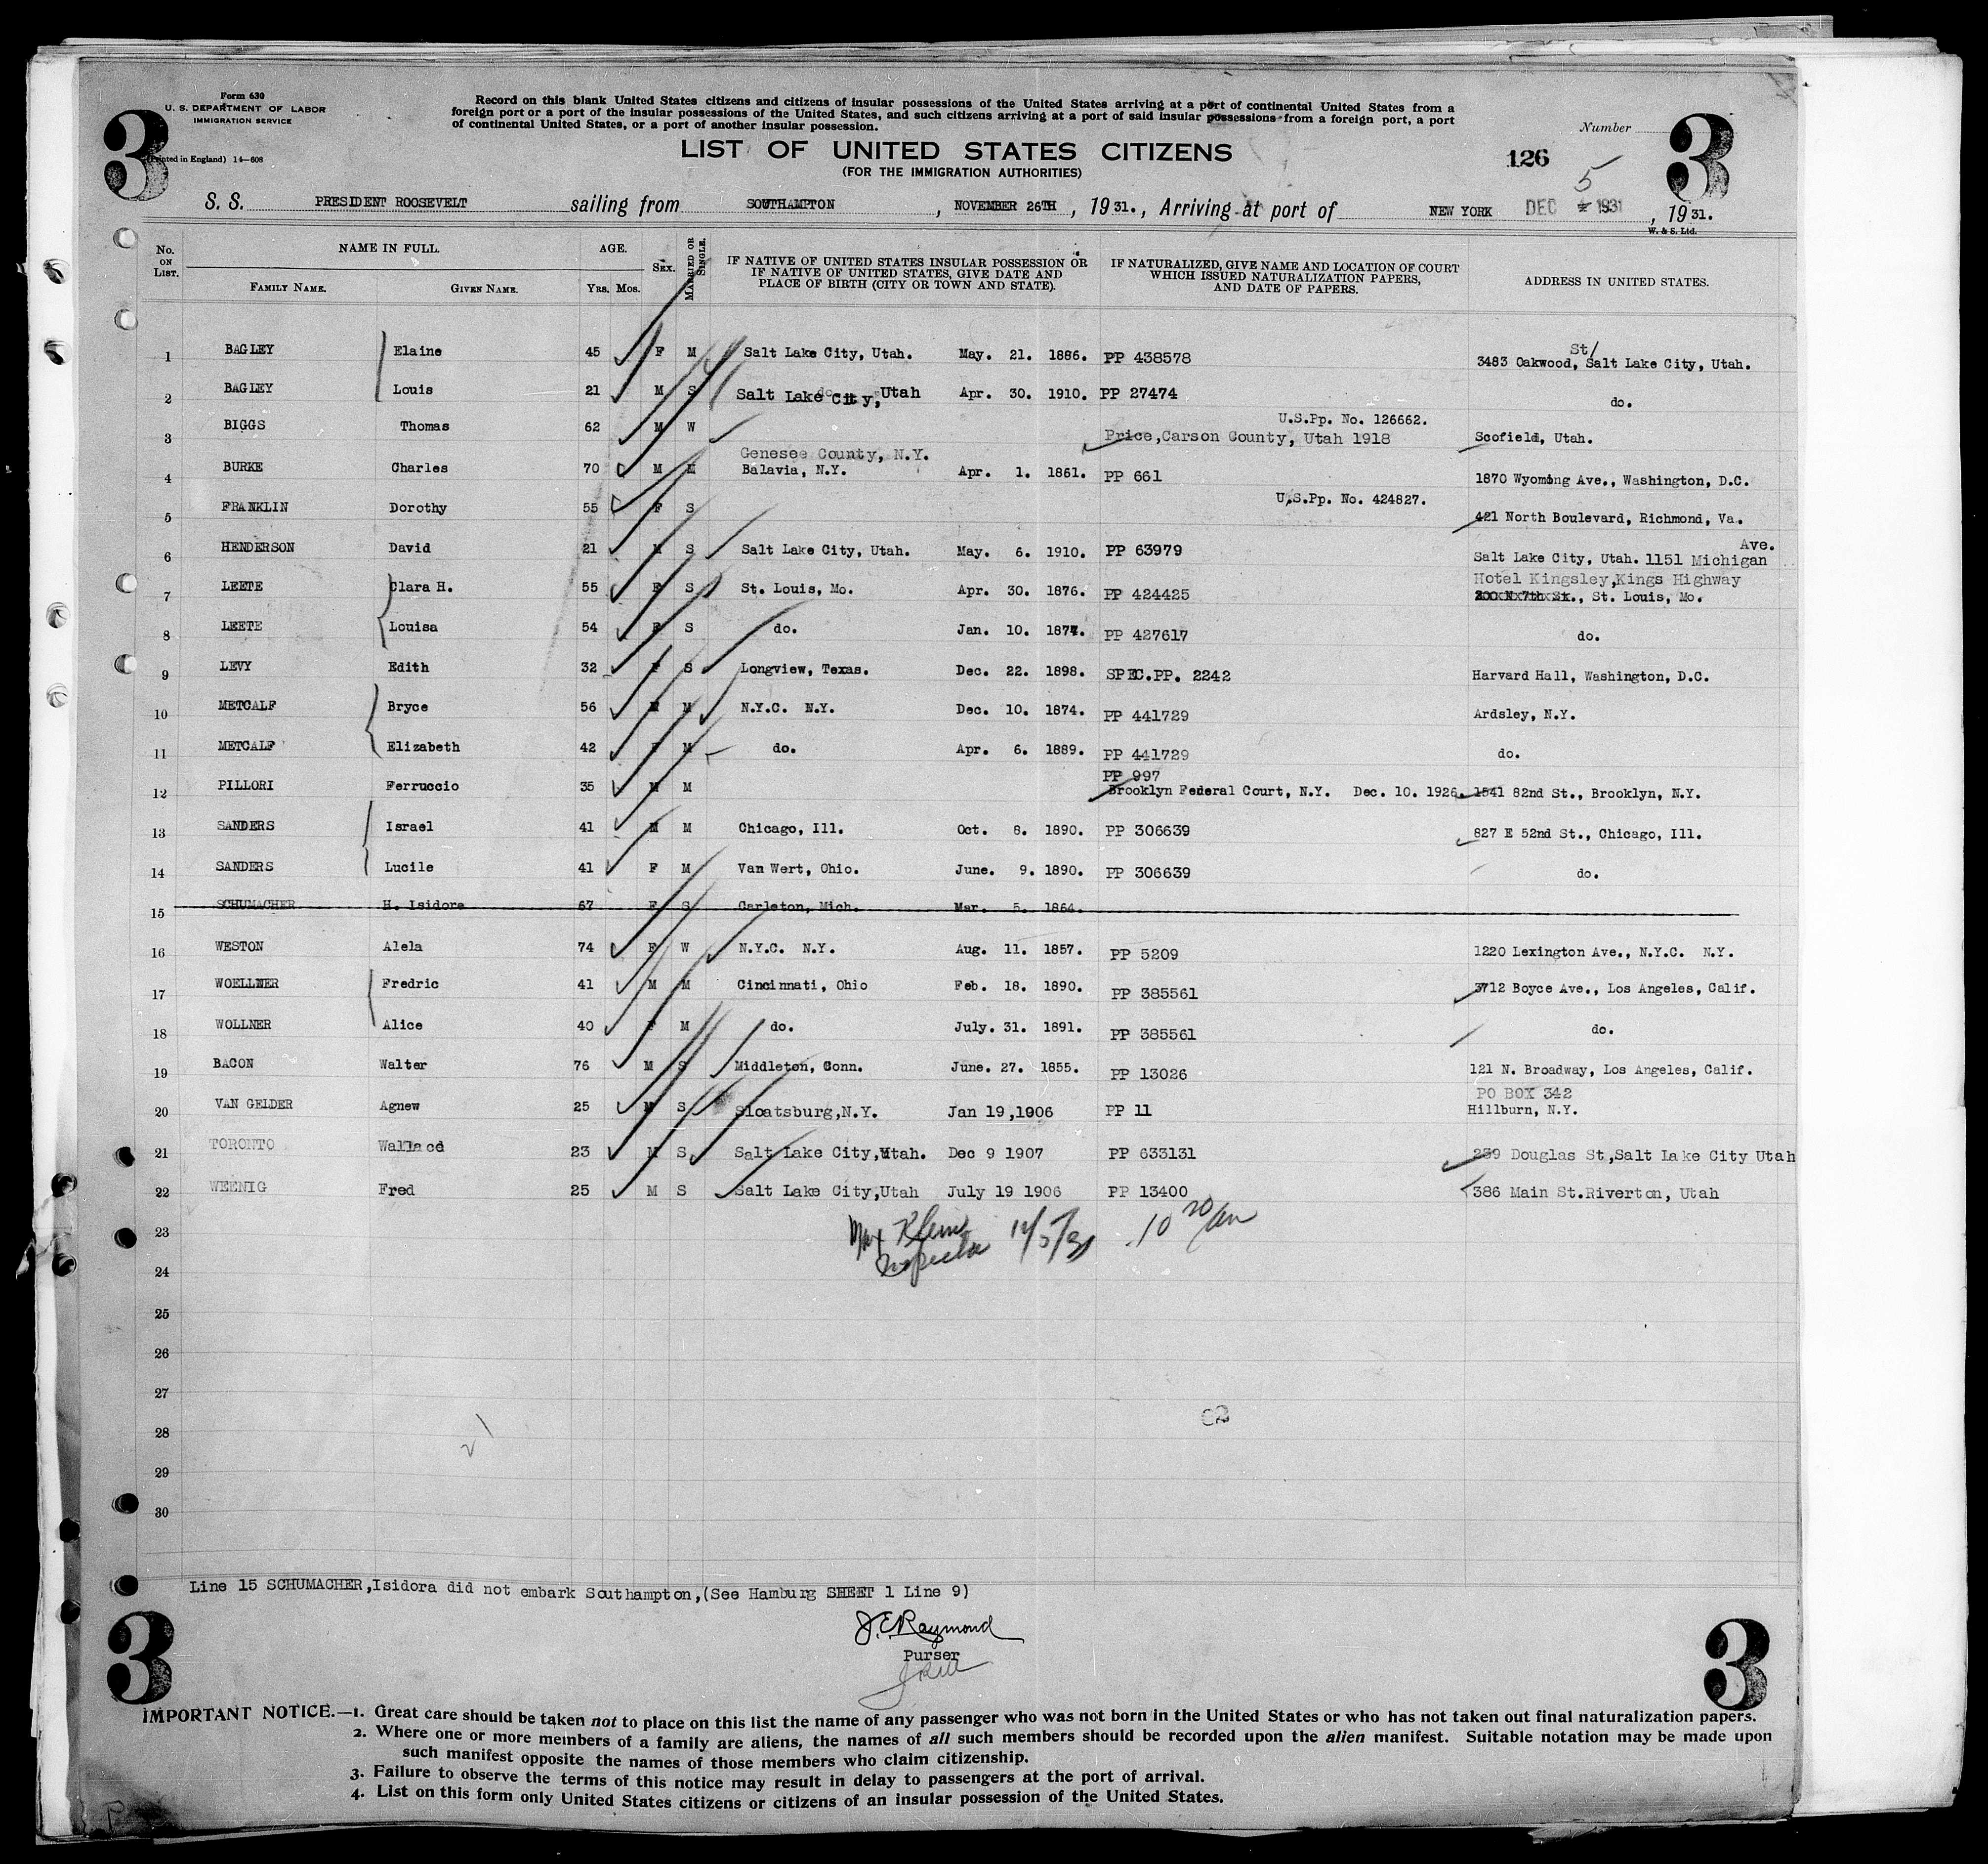 Form 630
U. S. DEPARTMENT OF LABOR
IMMIGRATION SERVICE
(Printed in England) 14—608
3
3
Record on this blank United States citizens and citizens of insular possessions of the United States arriving at a port of continental United States from a
foreign port or a port of the insular possessions of the United States, and such citizens arriving at a port of said insular possessions from a foreign port, a port
of continental United States, or a port of another insular possession.
Number
LIST OF UNITED STATES CITIZENS
(FOR THE IMMIGRATION AUTHORITIES)
126
5
S. S. PRESIDENT ROOSEVELT sailing from SOUTHAMPTON, NOVEMBER 26TH, 1931., Arriving at port of NEW YORK DEC 1931, 1931.
W. & S. Ltd.
No. ON LIST. NAME IN FULL. FAMILY NAME. GIVEN NAME. AGE. YRS. MOS. SEX. MARRIED OR SINGLE. IF NATIVE OF UNITED STATES INSULAR POSSESSION OR IF NATIVE OF UNITED STATES, GIVE DATE AND PLACE OF BIRTH (CITY OR TOWN AND STATE). IF NATURALIZED, GIVE NAME AND LOCATION OF COURT WHICH ISSUED NATURALIZATION PAPERS, AND DATE OF PAPERS. ADDRESS IN UNITED STATES.
1 BAGLEY Elaine 45 F M Salt Lake City, Utah. May. 21. 1886. PP 438578 3483 Oakwood, St/ Salt Lake City, Utah.
2 BAGLEY Louis 21 M S Salt Lake City, Utah Apr. 30. 1910. PP 27474 do.
3 BIGGS Thomas 62 M W U.S.Pp. No. 126662. Price,Carson County, Utah 1918 Scofield, Utah.
4 BURKE Charles 70 M M Genesee County, N.Y. Balavia, N.Y. Apr. 1. 1861. PP 661 1870 Wyoming Ave., Washington, D.C.
5 FRANKLIN Dorothy 55 F S U.S.Pp. No. 424827. 421 North Boulevard, Richmond, Va.
6 HENDERSON David 21 M S Salt Lake City, Utah. May. 6. 1910. PP 63979 Salt Lake City, Utah. 1151 Michigan Ave.
7 LEETE Clara H. 55 F S St. Louis, Mo. Apr. 30. 1876. PP 424425 Hotel Kingsley,Kings Highway 200 N 7th St., St. Louis, Mo.
8 LEETE Louisa 54 F S do. Jan. 10. 1877. PP 427617 do.
9 LEVY Edith 32 F S Longview, Texas. Dec. 22. 1898. SPEC.PP. 2242 Harvard Hall, Washington, D.C.
10 METCALF Bryce 56 M M N.Y.C. N.Y. Dec. 10. 1874. PP 441729 Ardsley, N.Y.
11 METCALF Elizabeth 42 F M do. Apr. 6. 1889. PP 441729 do.
12 PILLORI Ferruccio 35 M M PP 997 Brooklyn Federal Court, N.Y. Dec. 10. 1926. 1541 82nd St., Brooklyn, N.Y.
13 SANDERS Israel 41 M M Chicago, Ill. Oct. 8. 1890. PP 306639 827 E 52nd St., Chicago, Ill.
14 SANDERS Lucile 41 F M Van Wert, Ohio. June. 9. 1890. PP 306639 do.
15 SCHUMACHER H. Isidora 67 F S Carleton, Mich. Mar. 5. 1864.
16 WESTON Alela 74 F W N.Y.C. N.Y. Aug. 11. 1857. PP 5209 1220 Lexington Ave., N.Y.C. N.Y.
17 WOELLNER Fredric 41 M M Cincinnati, Ohio Feb. 18. 1890. PP 385561 3712 Boyce Ave., Los Angeles, Calif.
18 WOLLNER Alice 40 F M do. July. 31. 1891. PP 385561 do.
19 BACON Walter 76 M S Middleton, Conn. June. 27. 1855. PP 13026 121 N. Broadway, Los Angeles, Calif.
20 VAN GELDER Agnew 25 M S Sloatsburg,N.Y. Jan 19,1906 PP 11 PO BOX 342 Hillburn, N.Y.
21 TORONTO Wallacd 23 M S Salt Lake City,Utah. Dec 9 1907 PP 633131 239 Douglas St,Salt Lake City Utah
22 WEENIG Fred 25 M S Salt Lake City,Utah July 19 1906 PP 13400 386 Main St.Riverton, Utah
23 Max Klein 12/5/31 10 20/am
Inspector
24
25
26
27
28
29
30
Line 15 SCHUMACHER,Isidora did not embark Southampton,(See Hamburg SHEET 1 Line 9)
J.E.Raymond
Purser
3
3
IMPORTANT NOTICE.—1. Great care should be taken not to place on this list the name of any passenger who was not born in the United States or who has not taken out final naturalization papers.
2. Where one or more members of a family are aliens, the names of all such members should be recorded upon the alien manifest. Suitable notation may be made upon
such manifest opposite the names of those members who claim citizenship.
3. Failure to observe the terms of this notice may result in delay to passengers at the port of arrival.
4. List on this form only United States citizens or citizens of an insular possession of the United States.